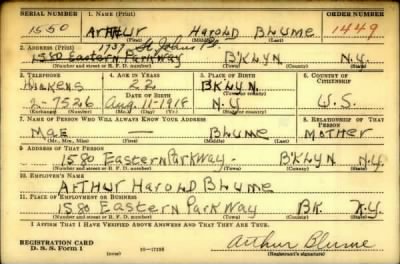 SERIAL NUMBER 1. NAME (Print) ORDER NUMBER
1550 ARTHUR Harold Blume 1449
(First) (Middle) (Last)
2. ADDRESS (Print) 1737 St Johns Pl.
1580 Eastern Parkway B'KLYN N.Y.
(Number and street or R. F. D. number) (Town) (County) (State)
3. TELEPHONE 4. AGE IN YEARS 5. PLACE OF BIRTH 6. COUNTRY OF CITIZENSHIP
22 BKLYN.
DATE OF BIRTH (Town or county)
2-7526 Aug. 11-1918 N.Y. U.S.
7. NAME OF PERSON WHO WILL ALWAYS KNOW YOUR ADDRESS 8. RELATIONSHIP OF THAT PERSON
Mae — Blume Mother
(Mr., Mrs., Miss) (First) (Middle) (Last)
9. ADDRESS OF THAT PERSON
1580 Eastern Parkway - B'KLYN N.Y.
(Number and street or R. F. D. number) (Town) (County) (State)
10. EMPLOYER'S NAME
Arthur Harold Blume
11. PLACE OF EMPLOYMENT OR BUSINESS
1580 Eastern Parkway BK. N.Y.
(Number and street or R. F. D. number) (Town) (County) (State)
I AFFIRM THAT I HAVE VERIFIED ABOVE ANSWERS AND THAT THEY ARE TRUE.
REGISTRATION CARD
D. S. S. Form 1 (over) Arthur Blume
(Registrant's signature)